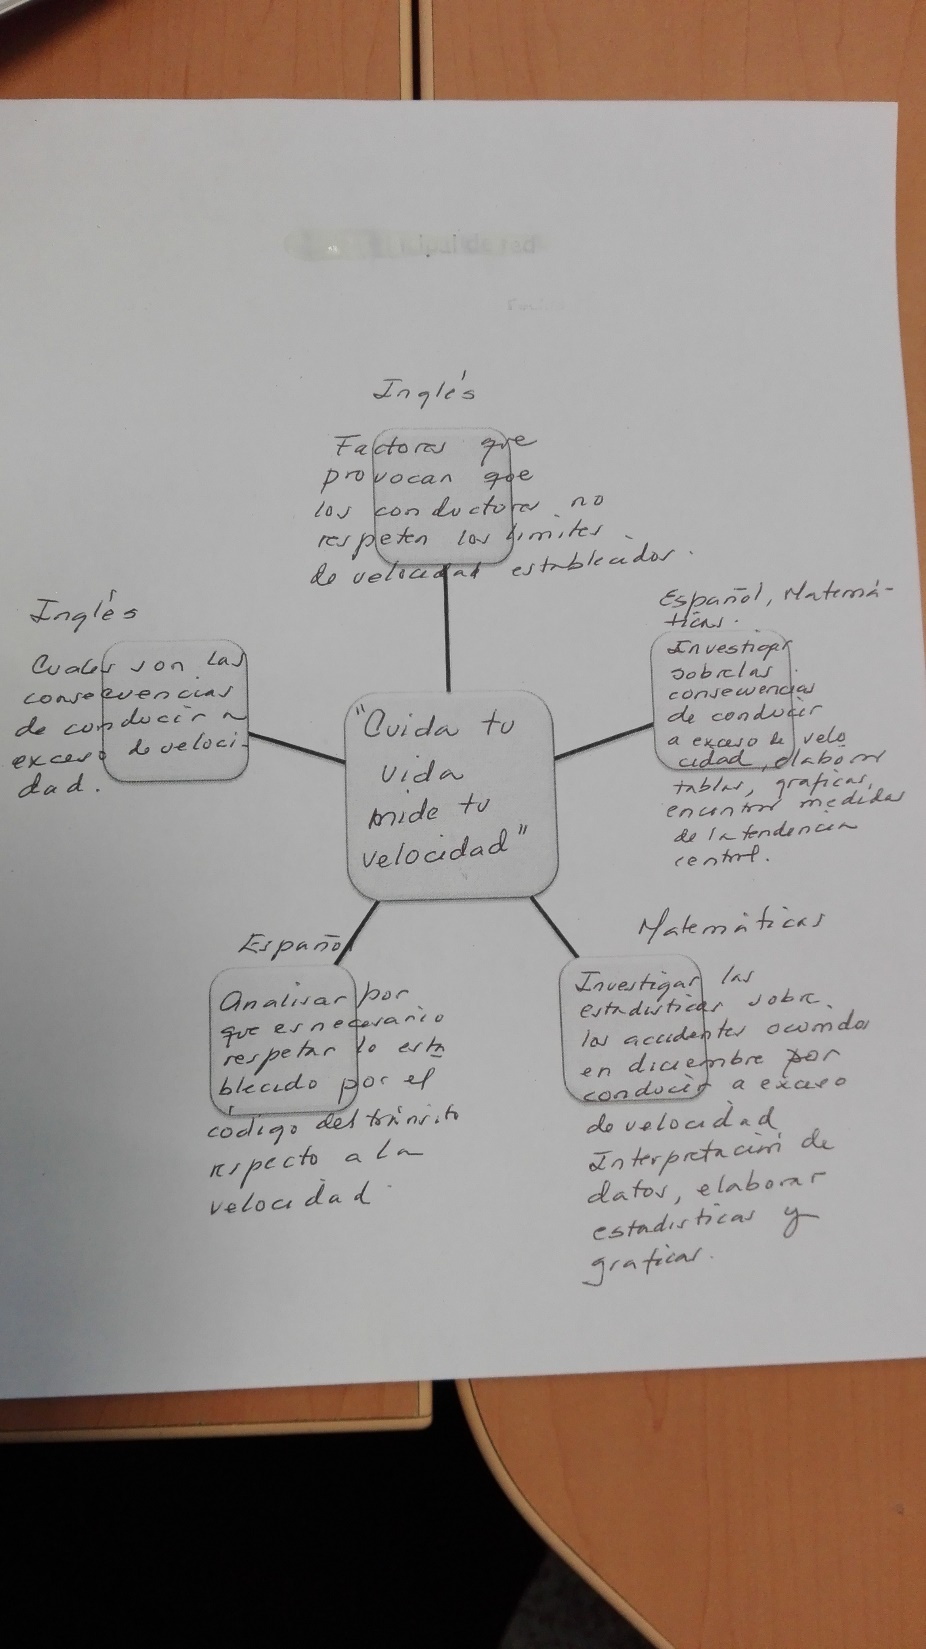 Inglés
Factores que
provocan que
los conductores no
respeten los limites
de velocidad establecidos.
Inglés
Cuales son las
consecuencias
de conducir a
exceso de veloci-
dad.
"Cuida tu
vida
mide tu
velocidad"
Español, Matemá-
ticas.
Investigar
sobre las
consecuencias
de conducir
a exceso de velo
cidad, elaborar
tablas, graficas,
encontrar medidas
de la tendencia
central.
Español
Analisar por
que es necesario
respetar lo esta
blecido por el
código del tránsito
respecto a la
velocidad.
Matemáticas
Investigar las
estadisticas sobre
los accidentes ocurridos
en diciembre por
conducir a exceso
de velocidad
Interpretación de
datos, elaborar
estadisticas y
graficas.